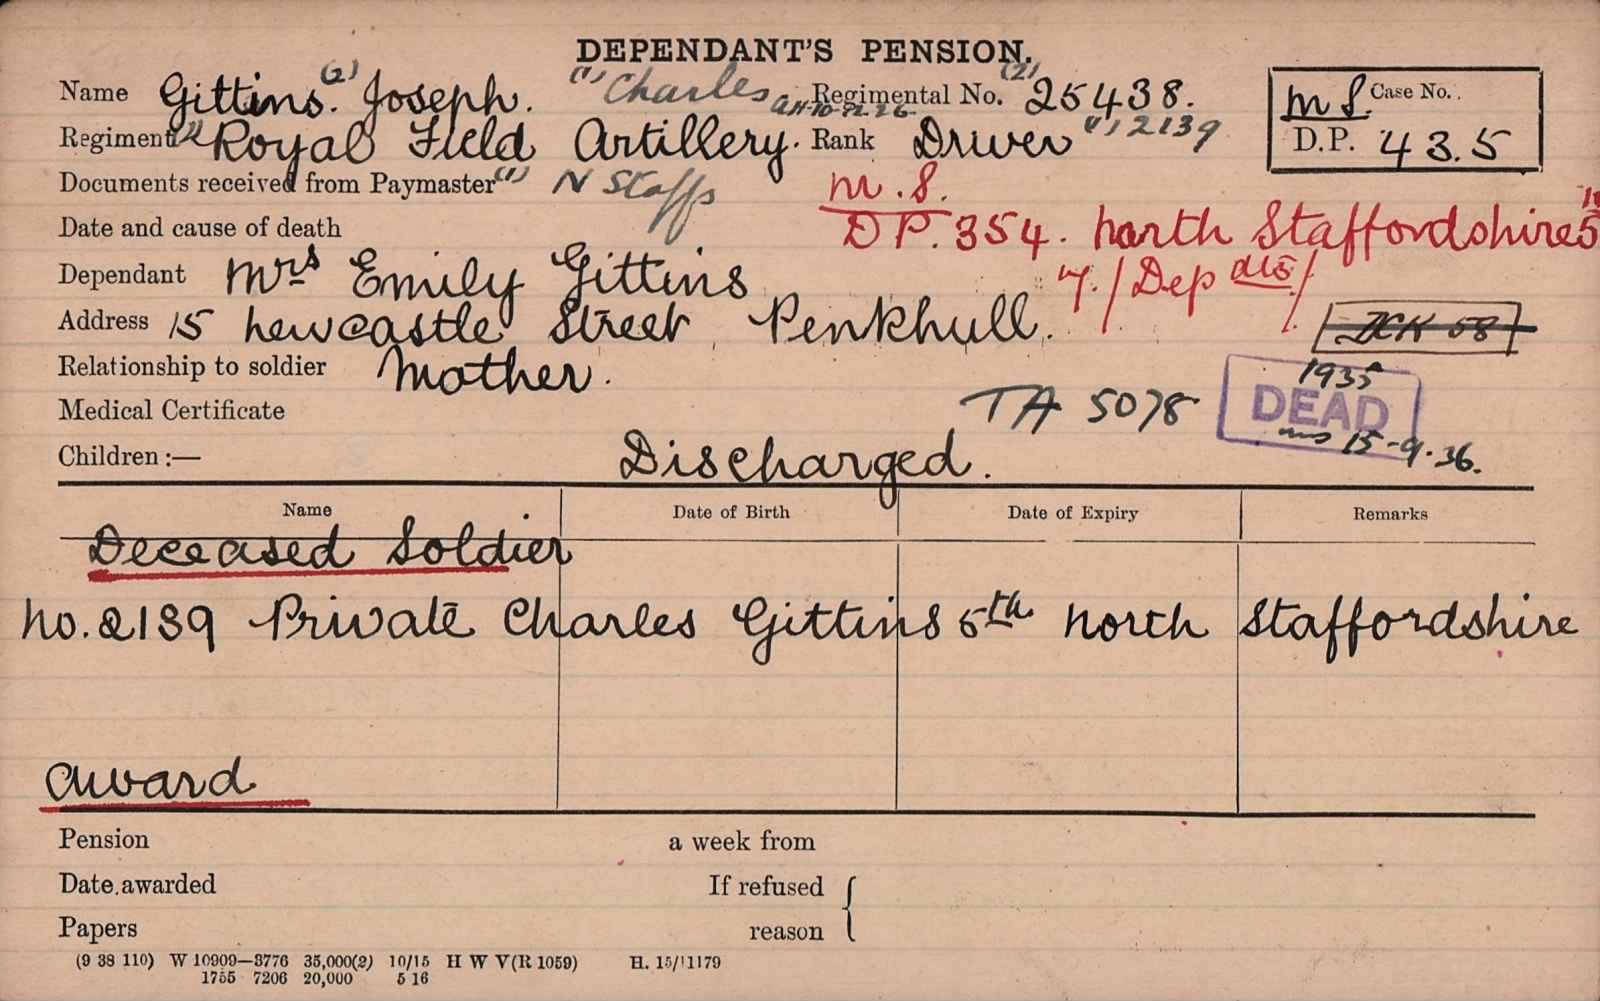 DEPENDANT'S PENSION.
Name Gittins. (2) Joseph. (1) Charles Regimental No. (2) 25438.
M S. Case No.
Regiment (2) Royal Field Artillery. Rank Driver (1) 2139
D.P. 435
Documents received from Paymaster (1) N Staffs
M.S.
Date and cause of death
DP. 354. North Staffordshire 5
Dependant Mrs Emily Gittins
Address 15 Newcastle Street, Penkhull.
DCK 58
Relationship to soldier Mother.
1935
Medical Certificate TA 5078
DEAD
15-9-36.
Children :— Discharged.
Name Date of Birth Date of Expiry Remarks
Deceased Soldier
No. 2139 Private Charles Gittins 5th North Staffordshire
Award
Pension a week from
Date awarded If refused {
Papers reason
(9 38 110) W 10909—3776 35,000(2) 10/15 H W V(R 1059) H. 15/1179
1755 7206 20,000 5 16